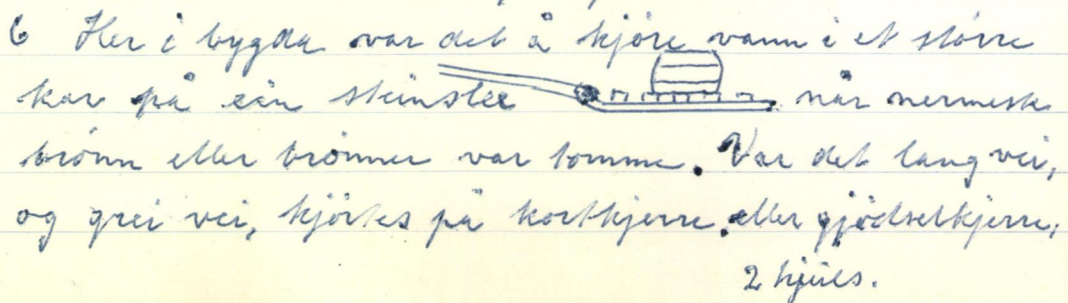 6 Her i bygda var det å kjøre vann i et større
kar på ein steinslee når nermeste
brönn eller brönner var tomme. Var det lang vei,
og grei vei, kjörtes på kortkjerre, eller gjödselkjerre,
2 hjuls.